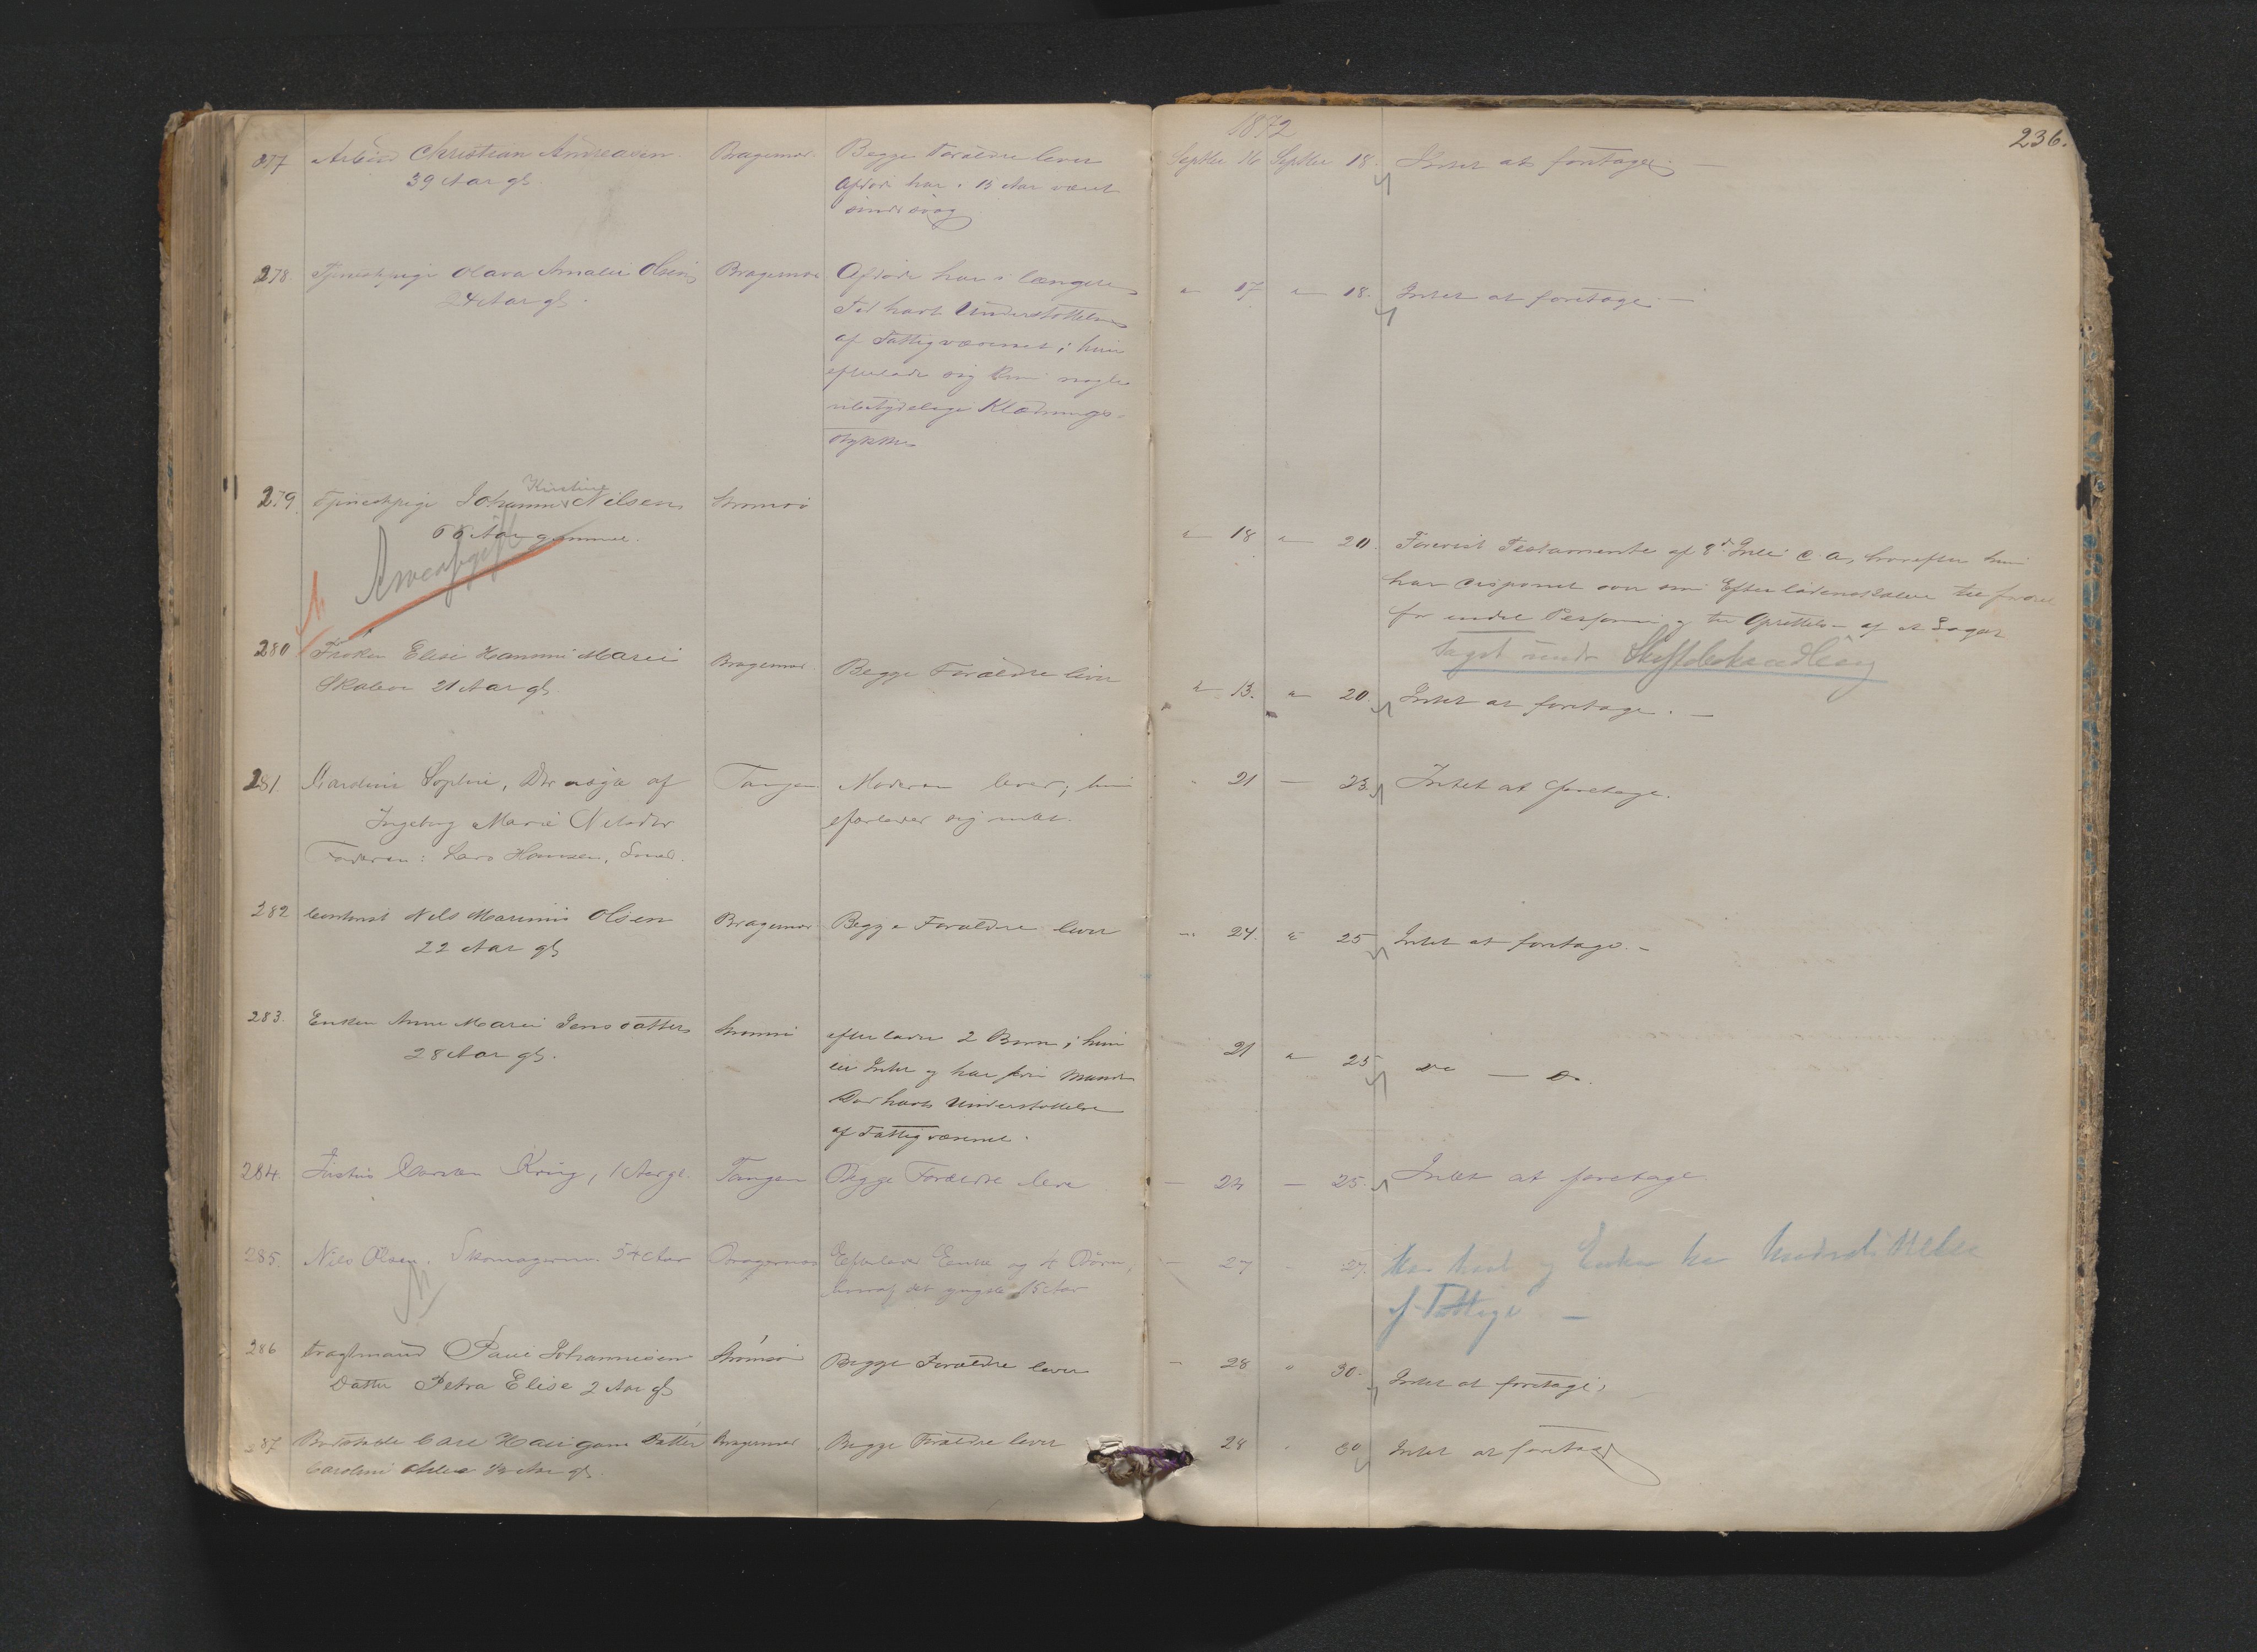 1872
236.
277 Arbeid Christian Andreasen Bragernæs Begge Forældre lever Septbr 16 Septbr 18. Intet at foretage. —
39 Aar gl. Afdøde har i 13 Aar været
sindssvag
278. Tjenestepige Olava Amalie Olsen Bragernæs Afdøde har i længere " 17 " 18. Intet at foretage. —
24 Aar gl. Tid havt Understøttelse
af Fattigvæsenet; hun
efterlader sig kun nogle
ubetydelige Klædnings-
stykker
279. Tjenestepige Johanne Kirstine Nilsen Strømsø
65 Aar gammel. " 18 " 20. Forevist Testamente af 8de Juli d. A., hvorefter hun
Arveafgift har disponeret over sine Efterladenskaber til fordel
for andre Personer og til Oprettelse af et Legat
Taget under Skiftebehandling
280 Frøken Elise Hanne Marie Bragernæs Begge Forældre lever " 13. " 20. Intet at foretage. —
21 Aar gl
281. Sophie, Dtr af Tangen Moderen lever; hun " 21 — 23 Intet at foretage.
Ingeborg Marie Nilsdtr efterlader sig intet.
Faderen: Lars Hansen, Smed.
282 Contorist Nils Marinius Olsen Bragernæs Begge Forældre lever " 24. " 25 Intet at foretage. —
22 Aar gl
283. Enken Anne Marie Jensdatter Strømsø efterlader 2 Børn; hun 21 " 25 do — do.
28 Aar gl. eier Intet og har siden Mandens
Død havt Understøttelse
af Fattigvæsenet.
284. Justus Carsten Krüg, 1 Aar gl. Tangen Begge Forældre leve — 24 — 25. Intet at foretage
285. Nils Olsen. Skomagersv. 54 Aar Bragernæs Efterlader Enke og 4 Børn, — 27 27. Har havt og Enken har Understøttelse
hvoraf det yngste 15 Aar af Fattigv. —
286 Fragtmand Johannesen Strømsø Begge Forældre lever — 28 " 30. Intet at foretage.
Datter Petra Elise 2 Aar gl
287 Datter Bragernæs Begge Forældre lever 28 30 Intet at foretage
Caroline 1/2 Aar gl.